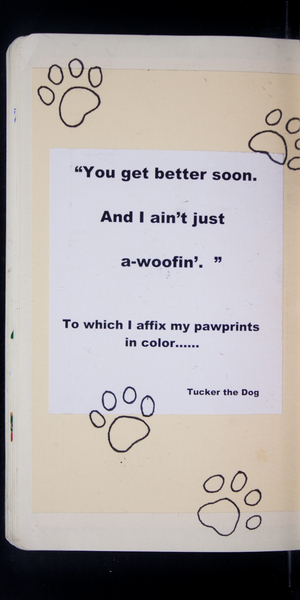 “You get better soon.
And I ain’t just
a-woofin’. ”
To which I affix my pawprints
in color......
Tucker the Dog